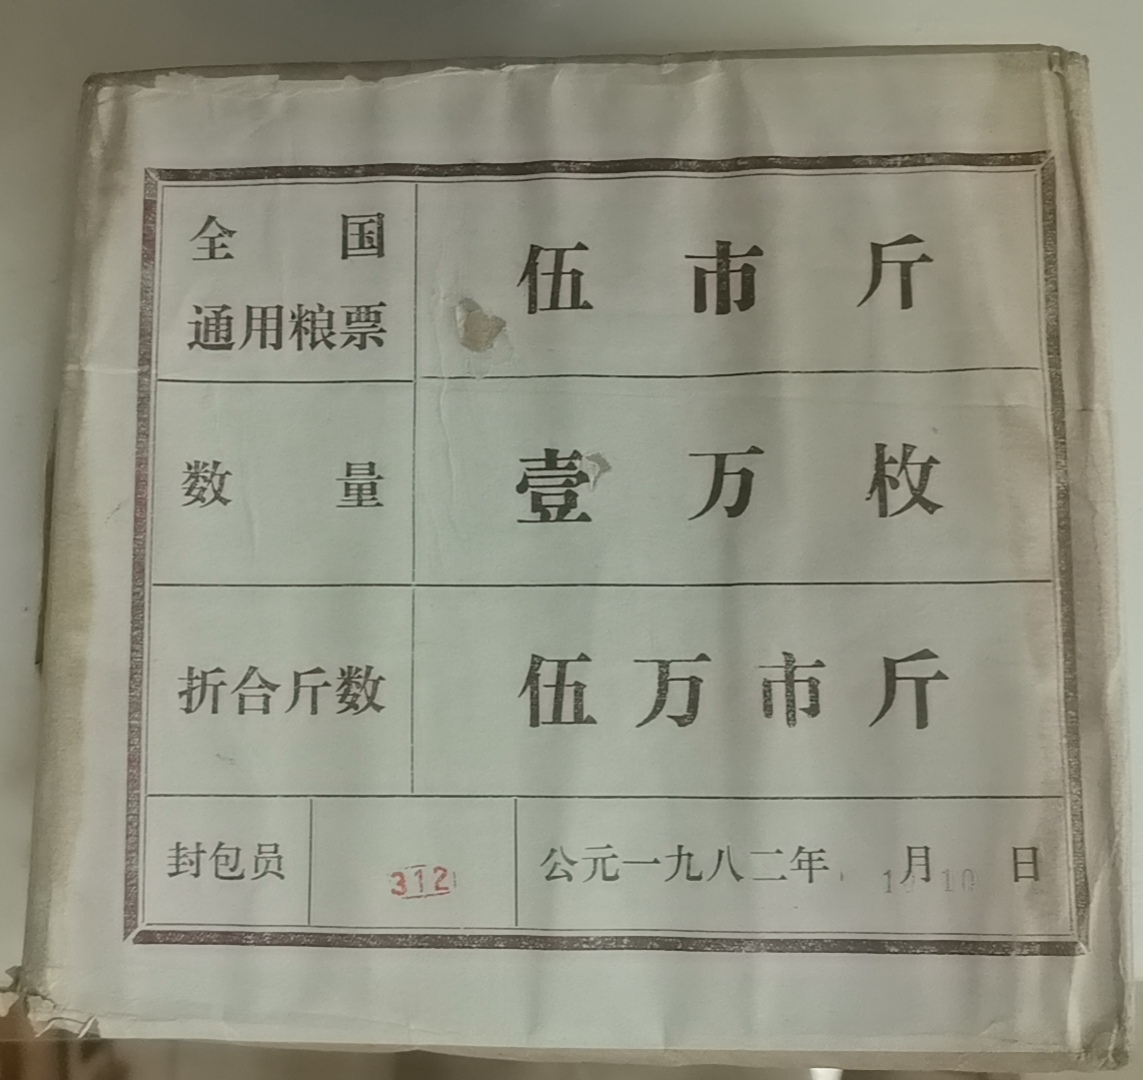 全国 伍市斤
通用粮票
数量 壹万枚
折合斤数 伍万市斤
封包员 312 公元一九八二年 月 10 日